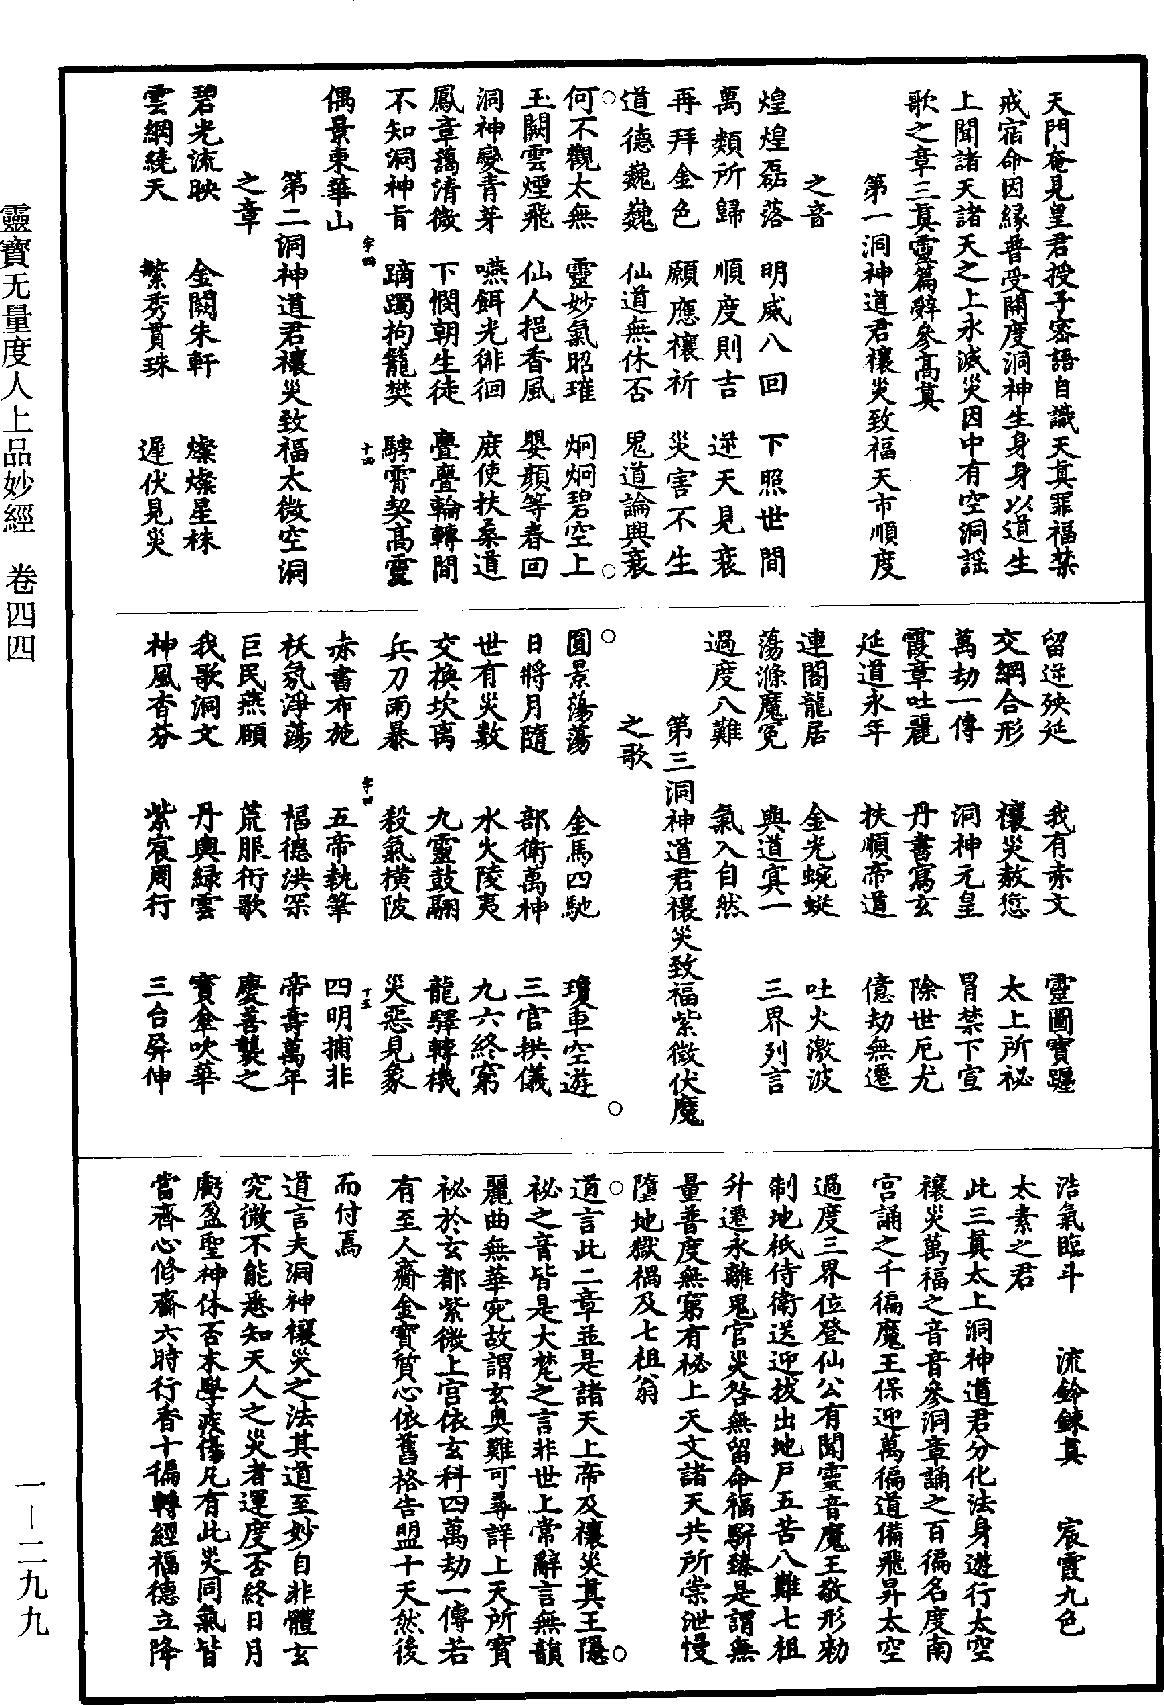 天門奄見皇君授予密語自識天真罪福禁
戒宿命因緣普受開度洞神生身身以道生
上聞諸天諸天之上永滅災因中有空洞謡
歌之章三真靈篇辭參高真
第一洞神道君禳災致福天市順度
之音
煌煌磊落　明威八回　下照世間
萬類所歸　順度則吉　逆天見衰
再拜金色　願應禳祈　災害不生
道德巍巍　仙道無休否　鬼道論興衰
何不觀太無　靈妙氣昭璀　炯炯碧空上
玉闕雲煙飛　仙人挹香風　嬰顏等春回
洞神變青芽　嚥餌光徘徊　庶使扶桑道
鳳章藹清微　下憫朝生徒　亹亹輪轉間
不知洞神旨　蹢躅拘籠樊　騁霄契高靈
字四　十四
偶景東華山
第二洞神道君禳災致福太微空洞
之章
碧光流映　金闕朱軒　燦燦星株
雲綱繞天　繁秀貫珠　遲伏見災
留逆殃延　我有赤文　靈圖寶躔
交綱合形　禳災赦愆　太上所祕
萬劫一傳　洞神元皇　冐禁下宣
霞章吐麗　丹書寫玄　除世厄尤
延道永年　扶順帝道　億劫無遷
連閣龍居　金光蜿蜒　吐火激波
蕩滌魔冤　與道冥一　三界列言
過度八難　氣入自然
第三洞神道君禳災致福紫微伏魔
之歌
圓景蕩蕩　金馬四馳　瓊車空遊
日將月隨　部衛萬神　三官拱儀
世有災數　水火陵夷　九六終窮
交換坎离　九靈鼓翮　龍驛轉機
兵刀雨暴　殺氣横陂　災惡見象
字四　十五
赤書布施　五帝執筆　四明捕非
袄氛淨蕩　福德洪罙　帝壽萬年
巨民燕願　荒服衎歌　慶善襲之
我歌洞文　丹輿綠雲　寶傘吹華
神風香芬　紫宸周行　三台屏伸
浩氣臨斗　流鈴鍊真　宸霞九色
太素之君
此三真太上洞神道君分化法身遊行太空
禳災萬福之音音參洞章誦之百徧名度南
宮誦之千徧魔王保迎萬徧道備飛昇太空
過度三界位登仙公有聞靈音魔王敬形勑
制地祇侍衛送迎拔出地戶五苦八難七祖
升遷永離鬼官災咎無留命福駢臻是謂無
量普度無窮有祕上天文諸天共所崇泄慢
墮地獄禍及七祖翁
道言此二章並是諸天上帝及禳災真王隱
祕之音皆是大梵之言非世上常辭言無韻
麗曲無華宛故謂玄奥難可尋詳上天所寶
祕於玄都紫微上宮依玄科四萬劫一傳若
有至人齎金寶質心依舊格告盟十天然後
而付焉
道言夫洞神禳災之法其道至妙自非體玄
究微不能悉知天人之災者運度否終日月
虧盈聖神休否本學疾傷凡有此災同氣皆
當齊心修齋六時行香十徧轉經福德立降
靈寶无量度人上品妙經　卷四四
一—二九九